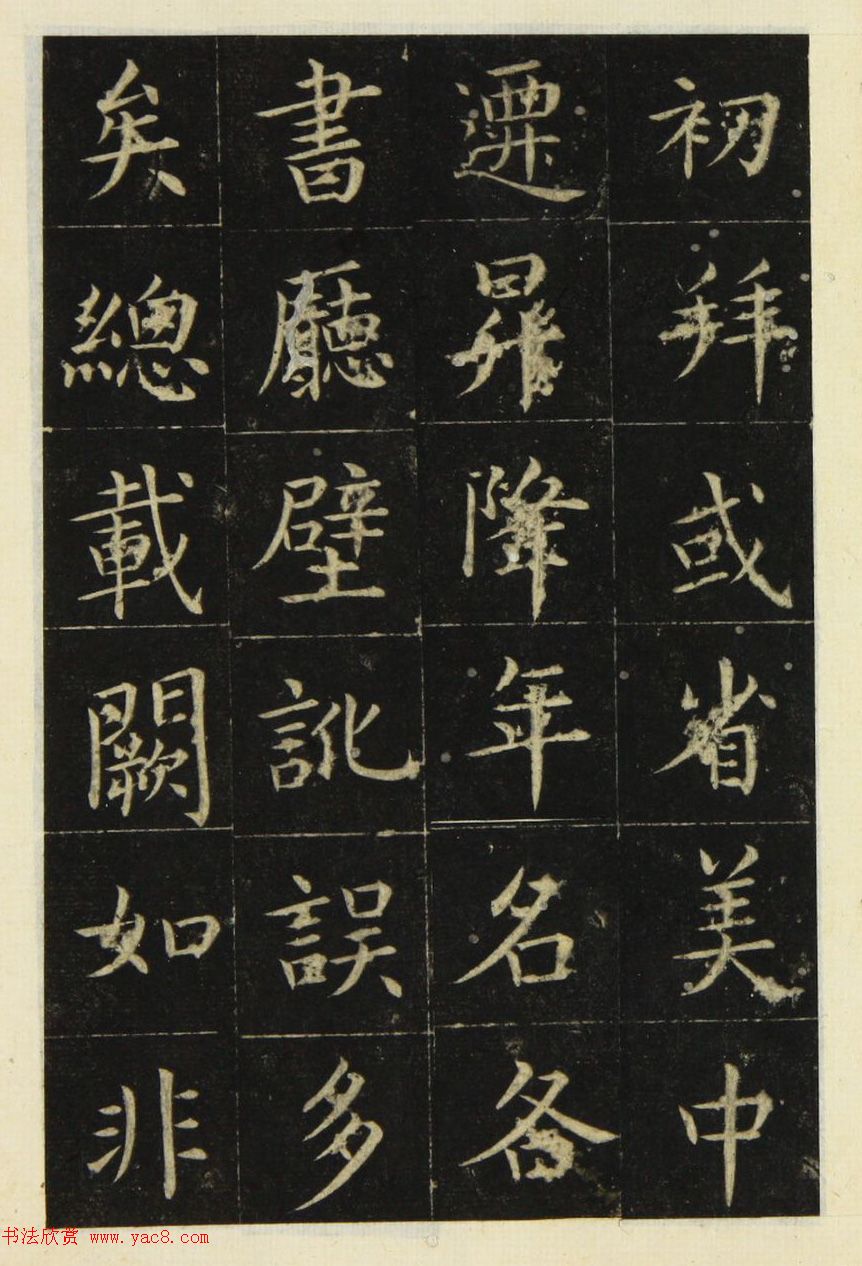 初拜或省美中
遷昇降年名各
書廳壁訛誤多
矣總載闕如非
书法欣赏 www.yac8.com